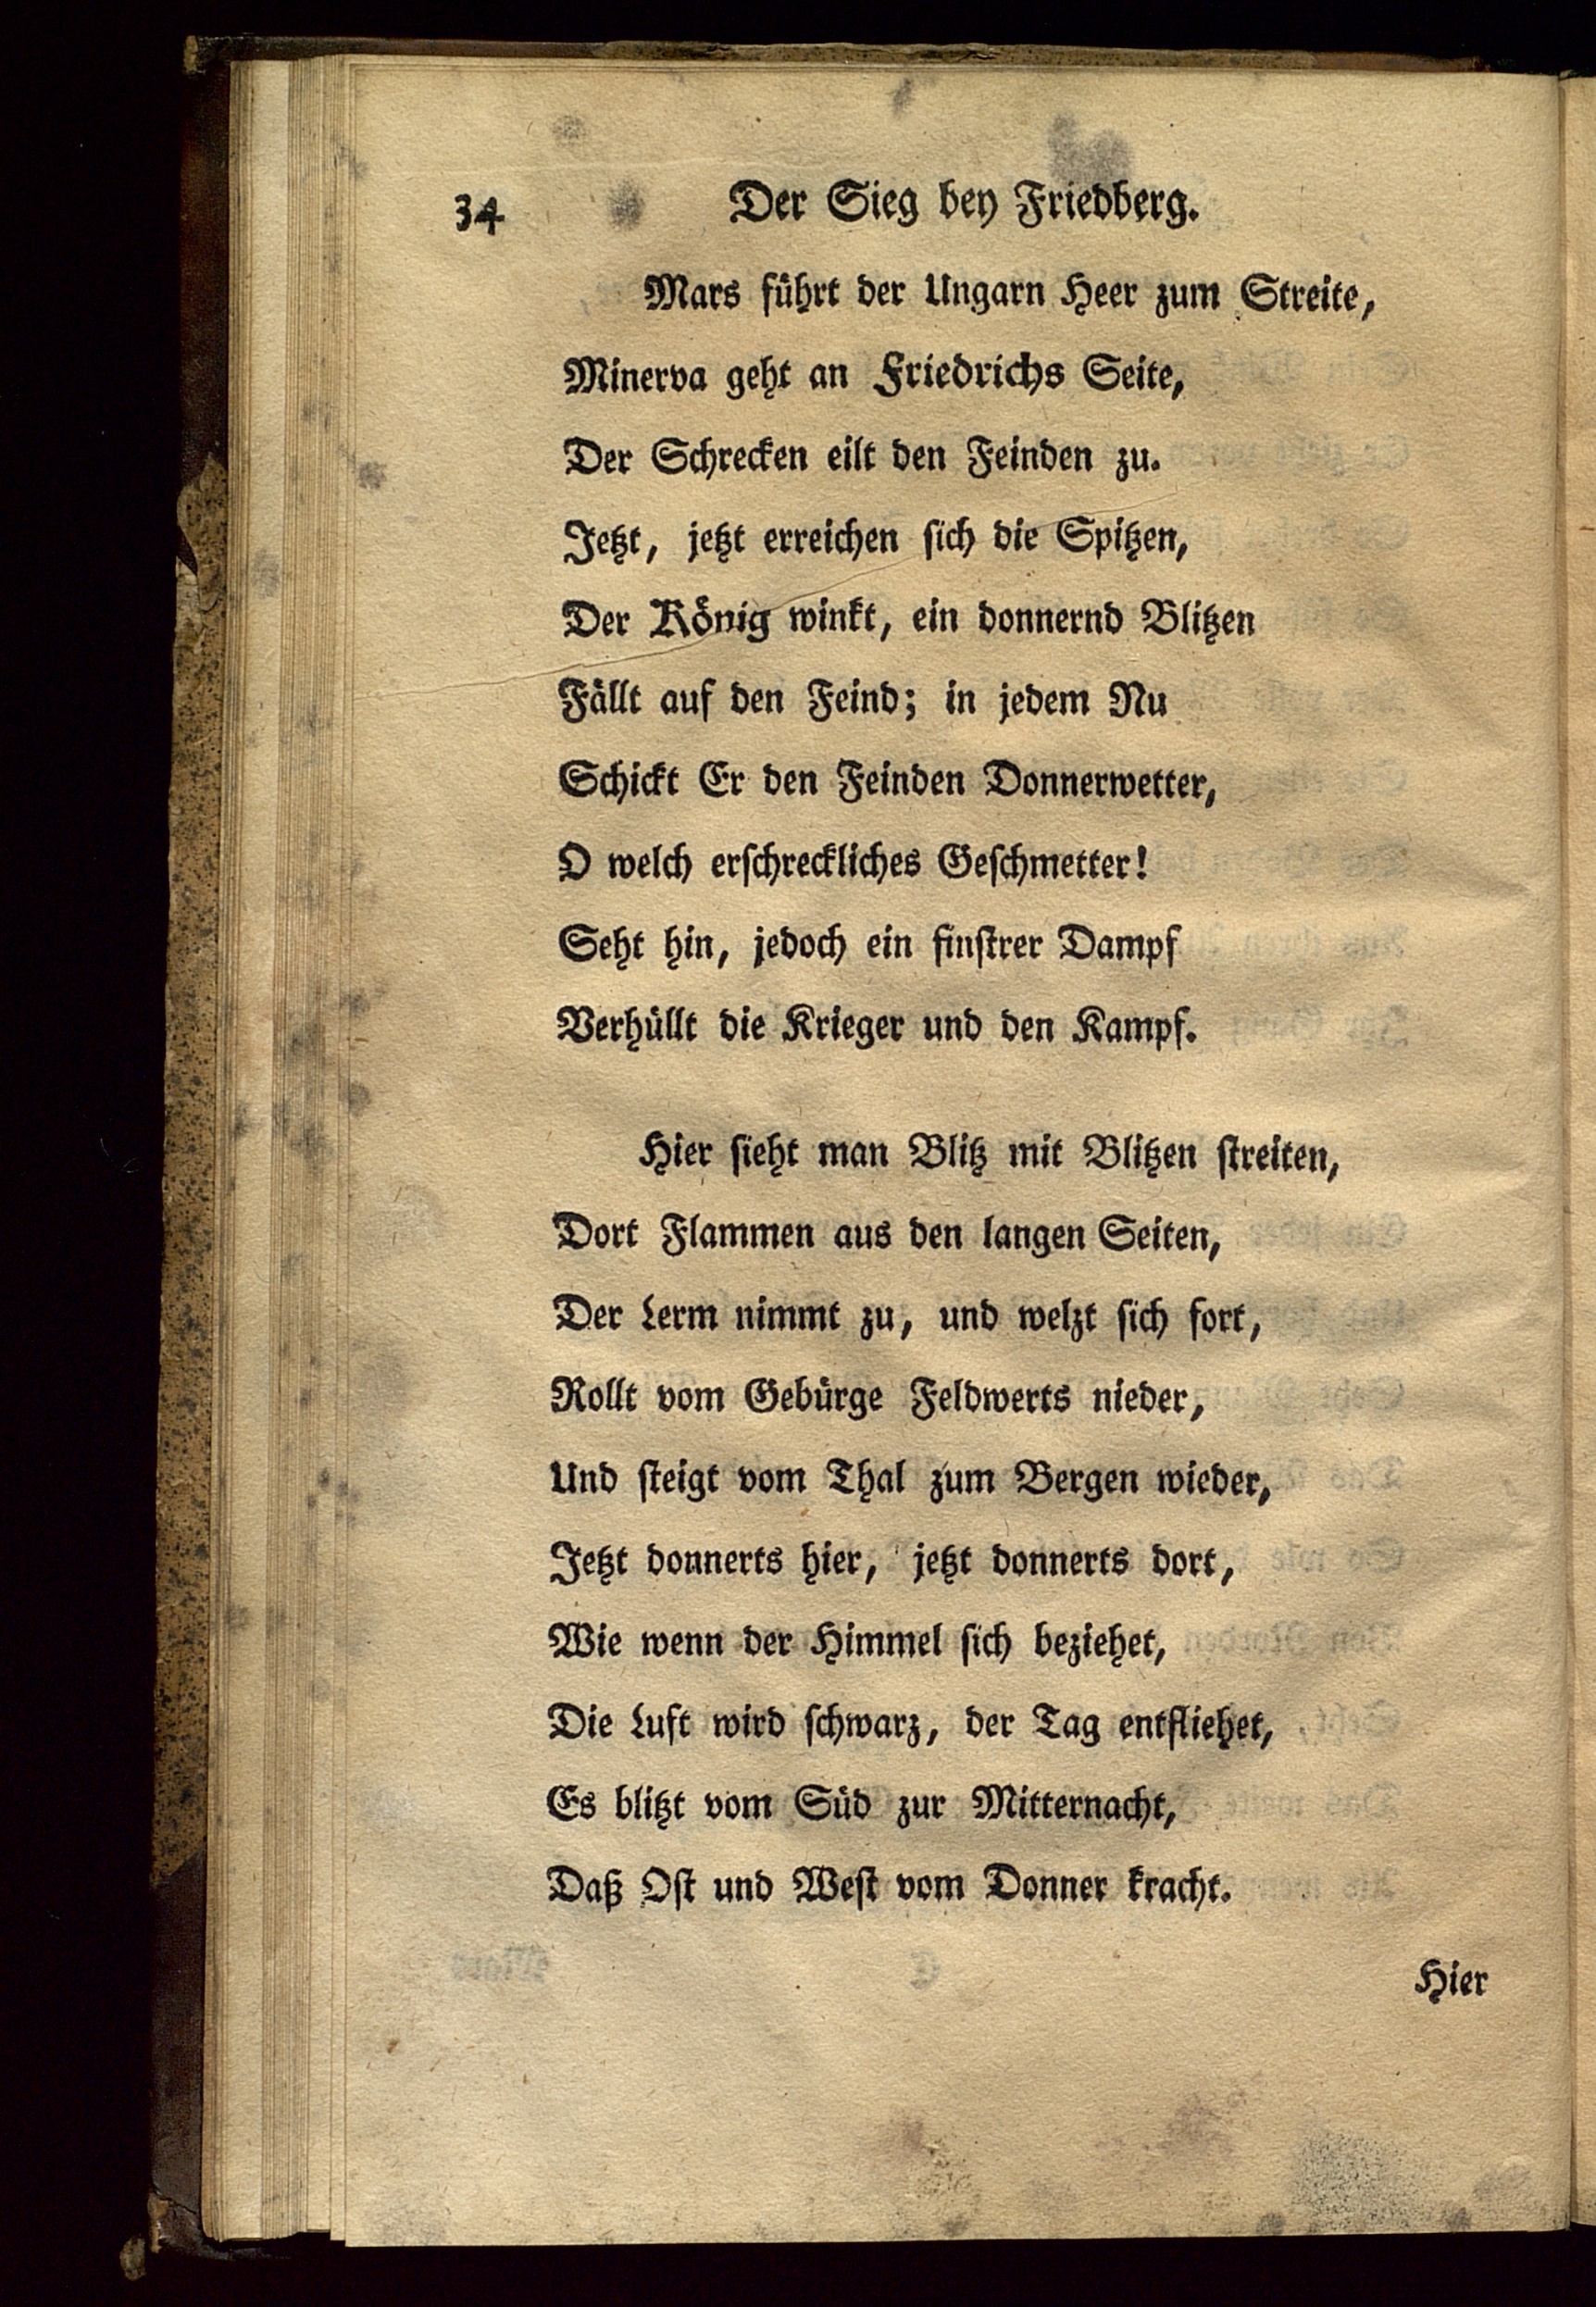 34 Der Sieg bey Friedberg.
Mars führt der Ungarn Heer zum Streite,
Minerva geht an Friedrichs Seite,
Der Schrecken eilt den Feinden zu.
Jetzt, jetzt erreichen ſich die Spitzen,
Der König winkt, ein donnernd Blitzen
Fällt auf den Feind; in jedem Nu
Schickt Er den Feinden Donnerwetter,
O welch erſchreckliches Geſchmetter!
Seht hin, jedoch ein finſtrer Dampf
Verhüllt die Krieger und den Kampf.
Hier ſieht man Blitz mit Blitzen ſtreiten,
Dort Flammen aus den langen Seiten,
Der Lerm nimmt zu, und welzt ſich fort,
Rollt vom Gebürge Feldwerts nieder,
Und ſteigt vom Thal zum Bergen wieder,
Jetzt donnerts hier, jetzt donnerts dort,
Wie wenn der Himmel ſich beziehet,
Die Luft wird ſchwarz, der Tag entfliehet,
Es blitzt vom Süd zur Mitternacht,
Daß Oſt und Weſt vom Donner kracht.
Hier